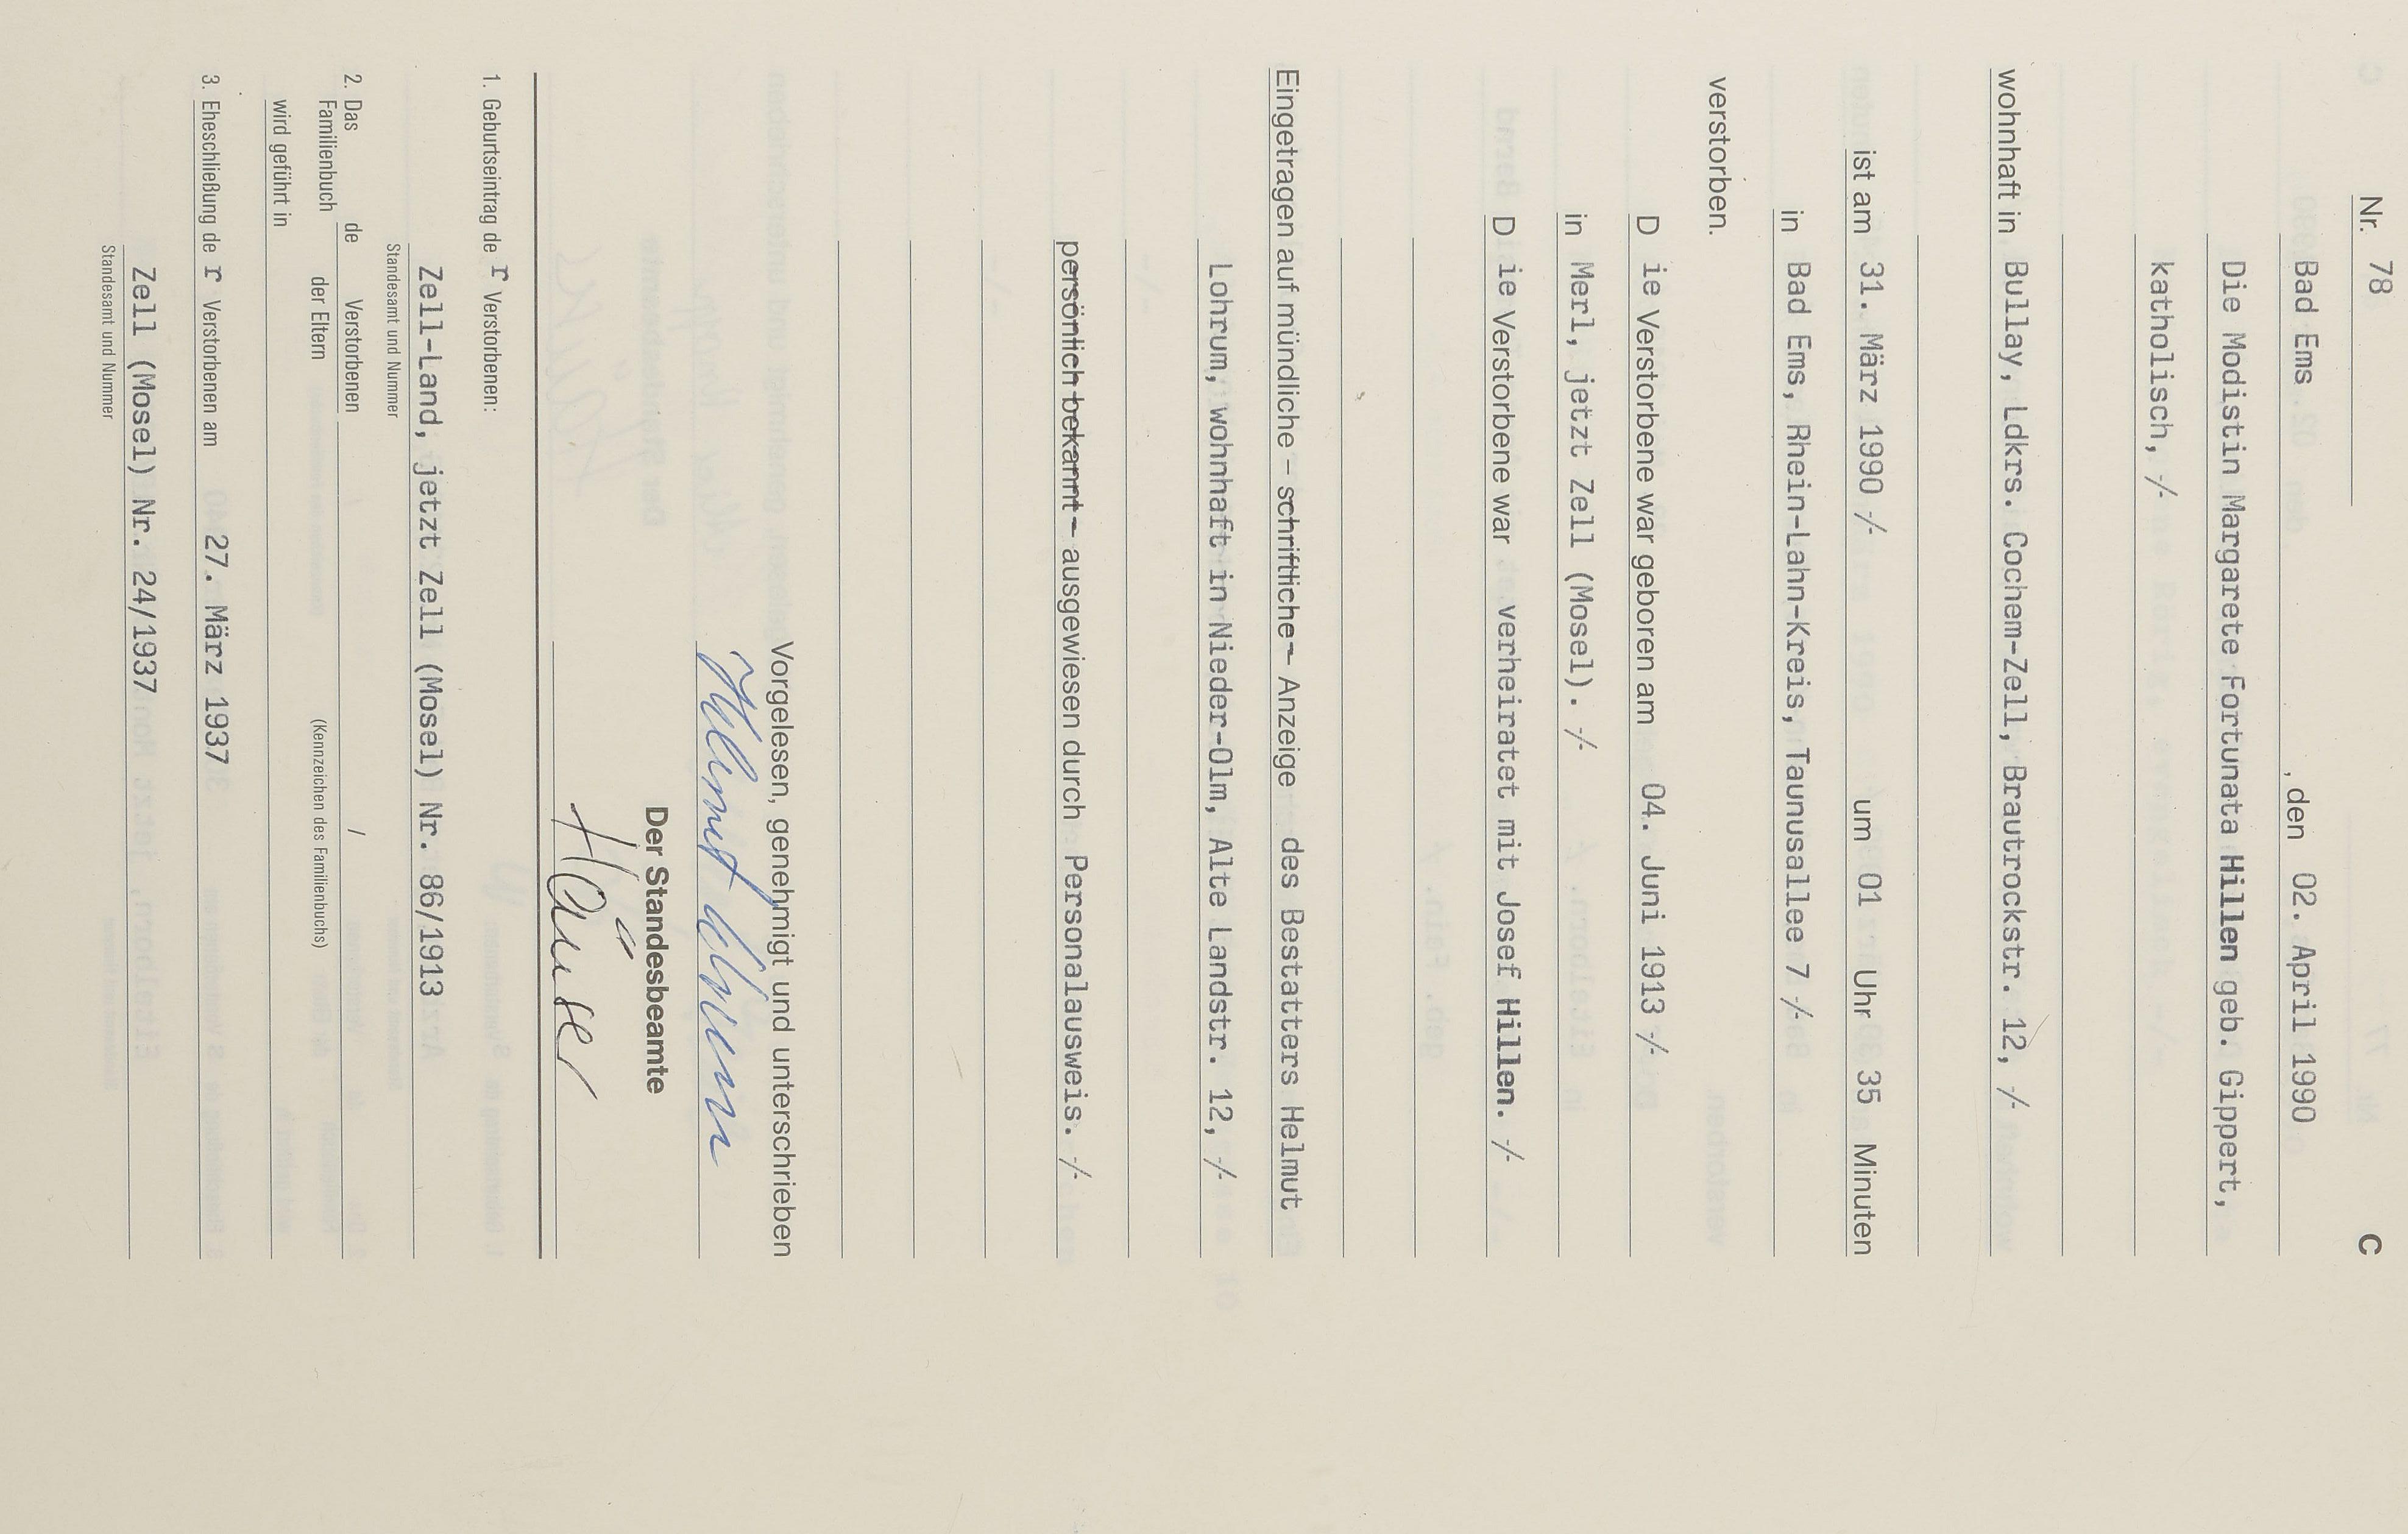 Nr. 78 C
Bad Ems , den 02. April 1990
Die Modistin Margarete Fortunata Hillen geb. Gippert,
katholisch, -/-
wohnhaft in Bullay, Ldkrs. Cochem-Zell, Brautrockstr. 12, -/-
ist am 31. März 1990 -/- um 01 Uhr 35 Minuten
in Bad Ems, Rhein-Lahn-Kreis, Taunusallee 7 -/-
verstorben.
D ie Verstorbene war geboren am 04. Juni 1913 -/-
in Merl, jetzt Zell (Mosel). -/-
D ie Verstorbene war verheiratet mit Josef Hillen. -/-
Eingetragen auf mündliche – schriftliche – Anzeige des Bestatters Helmut
Lohrum, wohnhaft in Nieder-Olm, Alte Landstr. 12, -/-
persönlich bekannt – ausgewiesen durch Personalausweis. -/-
Vorgelesen, genehmigt und unterschrieben
Helmut Lohrum
Der Standesbeamte
Häuser
1. Geburtseintrag de r Verstorbenen:
Zell-Land, jetzt Zell (Mosel) Nr. 86/1913
Standesamt und Nummer
2. Das Familienbuch de Verstorbenen / /
der Eltern (Kennzeichen des Familienbuchs)
wird geführt in
3. Eheschließung de r Verstorbenen am 27. März 1937
Zell (Mosel) Nr. 24/1937
Standesamt und Nummer